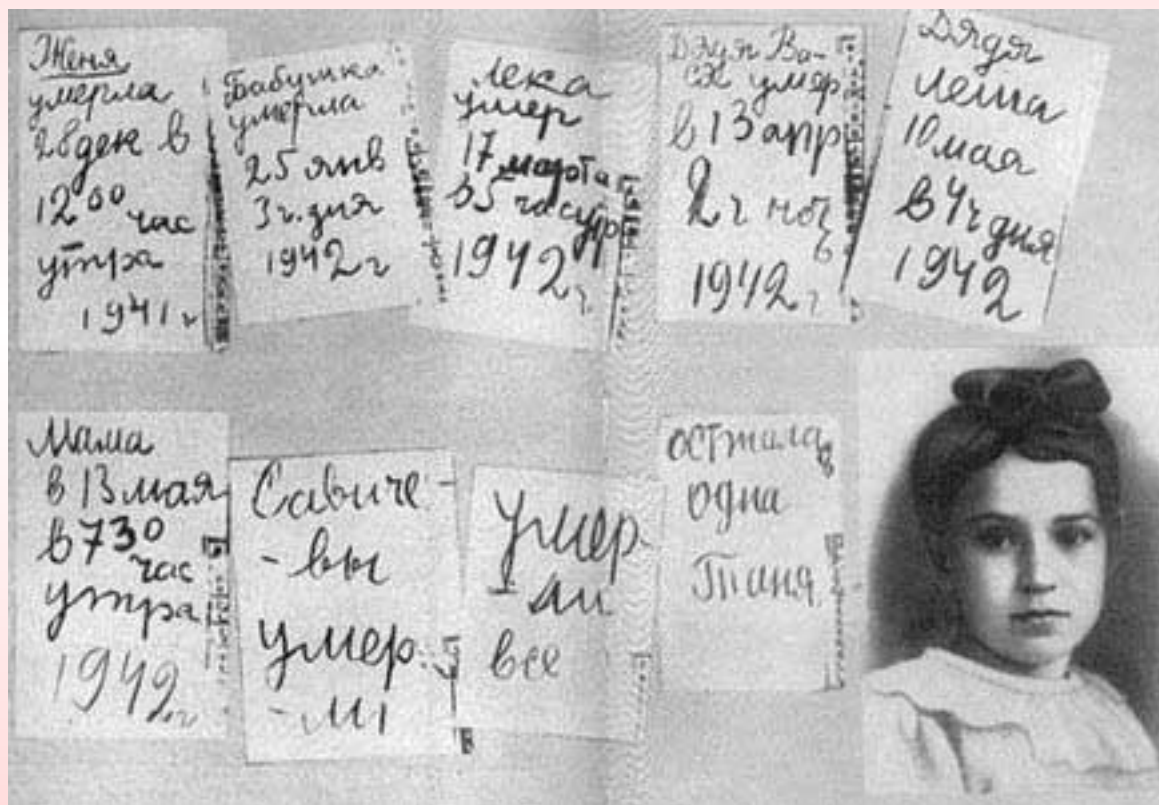 Женя
умерла
28 дек в
12 00 час
утра
1941 г
Бабушка
умерла
25 янв
3 ч. дня
1942 г
Лека
умер
17 марта
в 5 час утр
1942 г.
Дядя Ва-
ся умер
в 13 апр
2 ч ноч
1942 г
Дядя
Леша
10 мая
в 4 ч дня
1942
Мама
в 13 мая
в 730
час
утра
1942 г
Савиче-
-вы
умер
-ли
умер-
-ли
все
осталась
одна
Таня